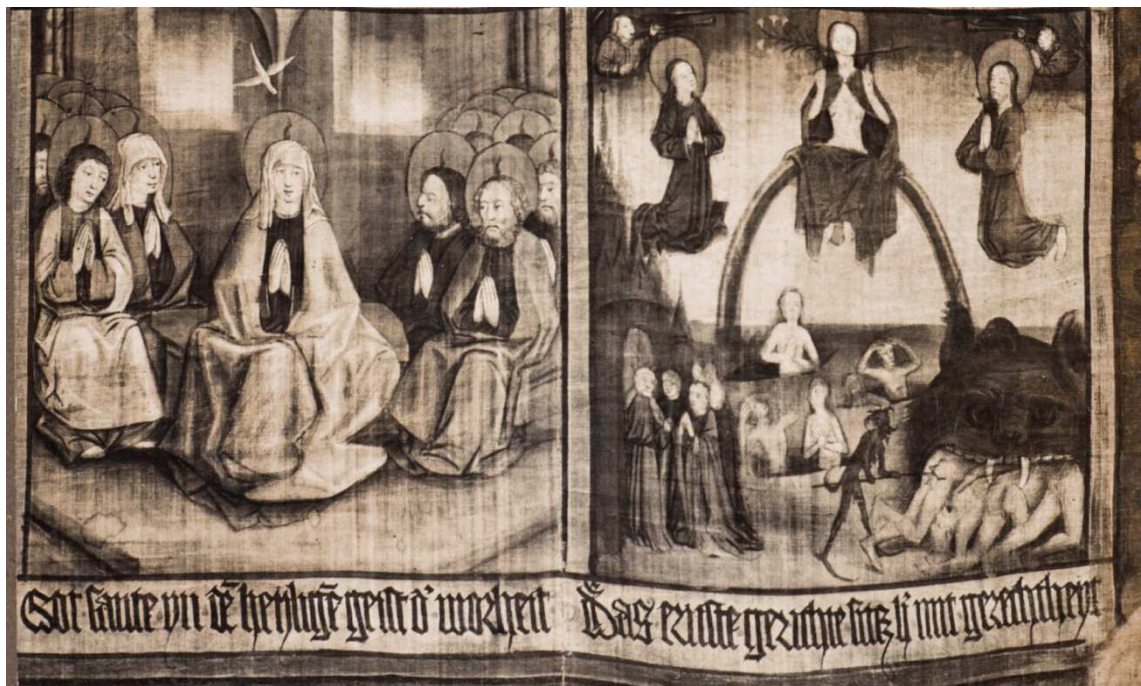 Got sante yn dē heyligē geist d' worheit
Das ernste gerichte sitz h' mit gerechtheyt